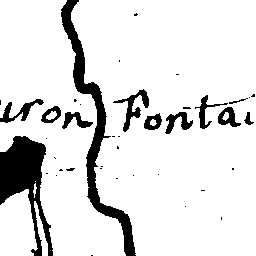 uron Fontai